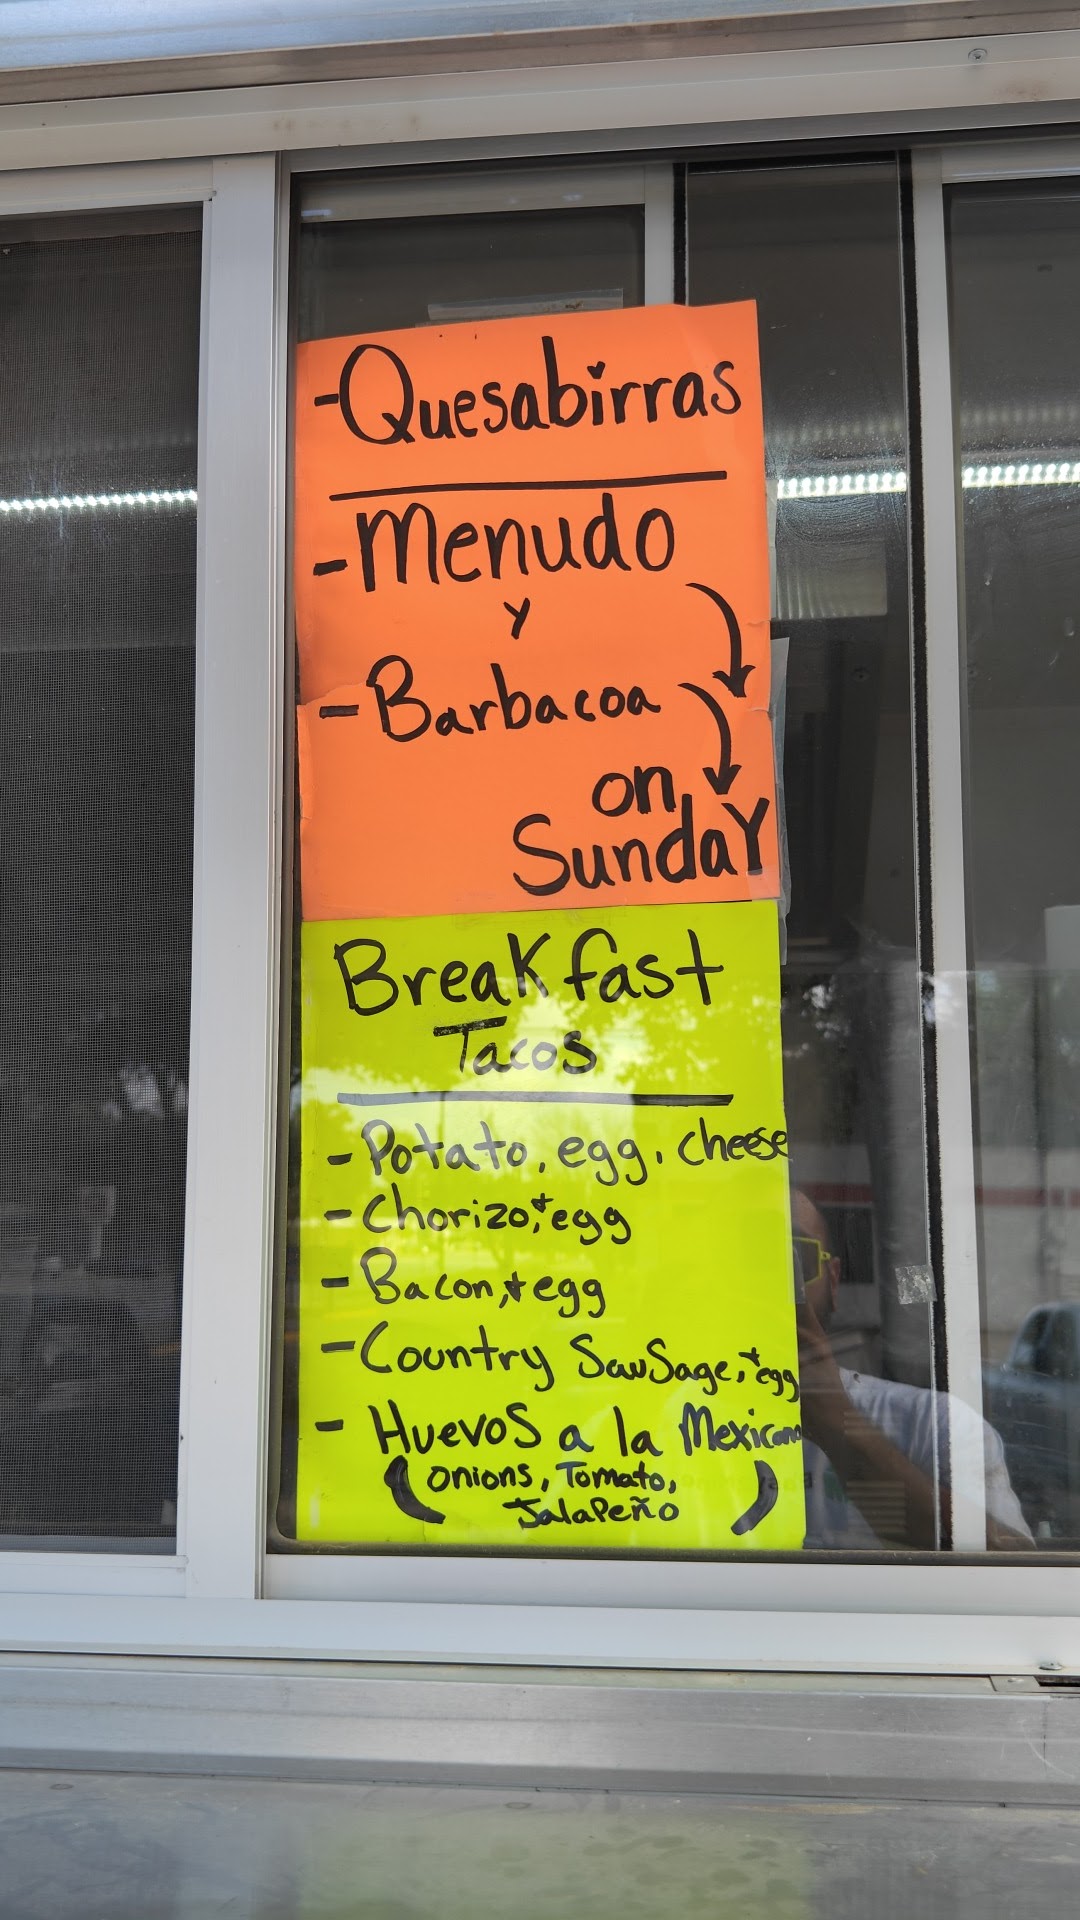 -Quesabirras
-Menudo
y
-Barbacoa
on
Sunday
Breakfast
Tacos
-Potato, egg, cheese
-Chorizo,+egg
-Bacon,+egg
-Country Sausage,+egg
- Huevos a la Mexicana
(onions, Tomato,
Jalapeño)